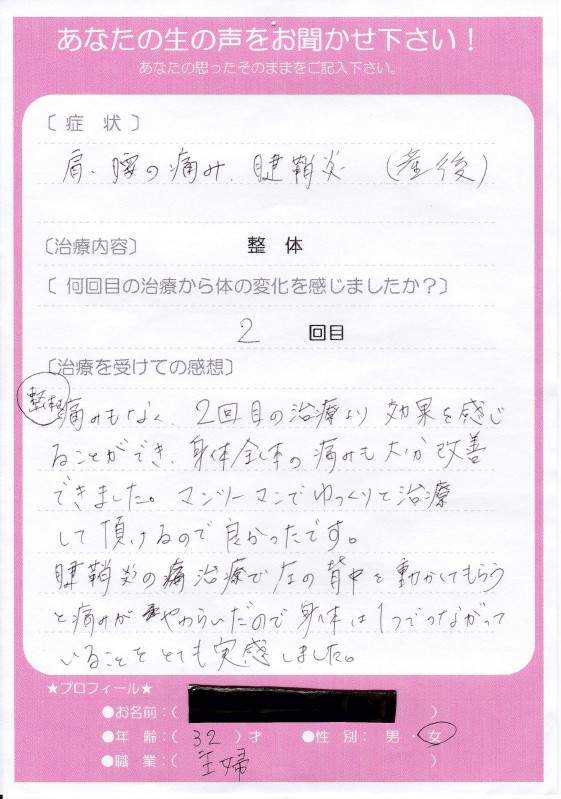 あなたの生の声をお聞かせ下さい！
あなたの思ったそのままをご記入下さい。
〔 症　状 〕
肩、腰の痛み、腱鞘炎　（産後）
〔治療内容〕　整　体
〔 何回目の治療から体の変化を感じましたか？〕
2　回目
〔治療を受けての感想〕
痛みもなく、2回目の治療より効果を感じ
ることができ、身体全体の痛みも大分改善
できました。マンツーマンでゆっくりと治療
して頂けるので良かったです。
腱鞘炎の治療で左の背中を動かしてもらう
と痛みがやわらいだので身体は1つでつながって
いることをとても実感しました。
★プロフィール★
●お名前：（　）
●年　齢：（ 32 ）才　●性　別：　男 ・ 女
●職　業：（ 主婦 ）